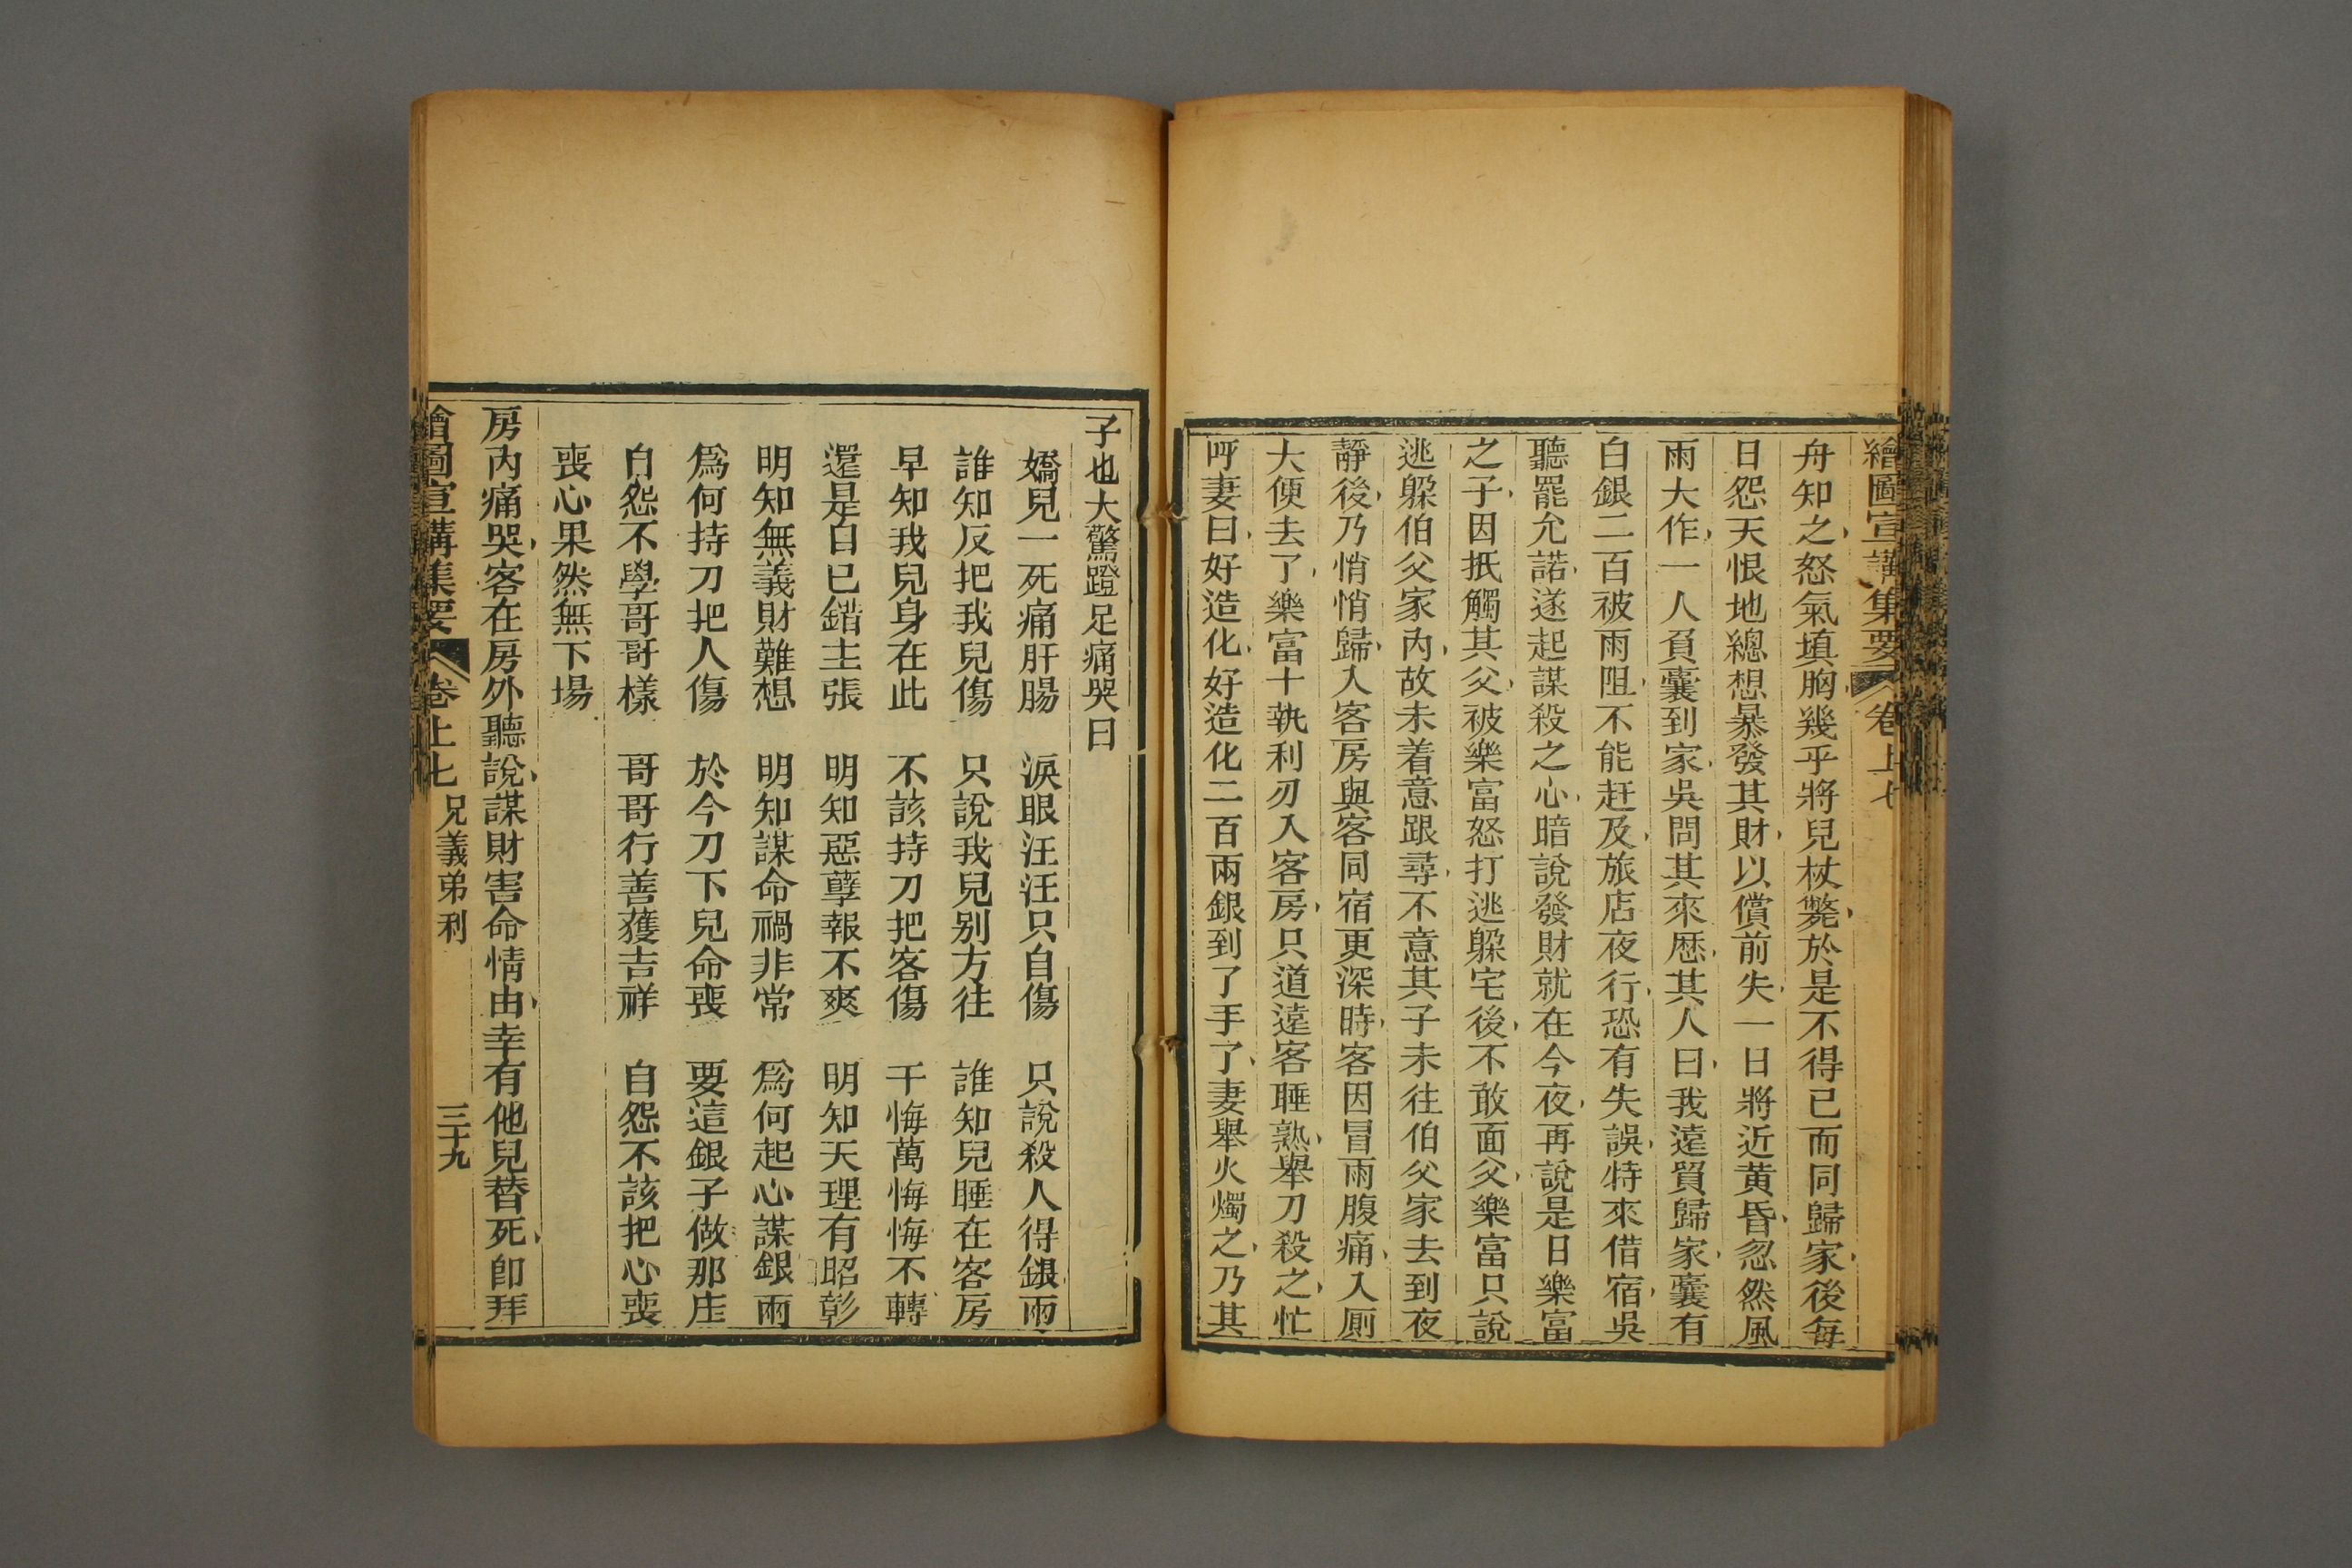 繪圖宣講集要 卷上七
舟知之怒氣填胸幾乎將兒杖斃於是不得已而同歸家後每
日怨天恨地總想暴發其財以償前失一日將近黃昏忽然風
雨大作一人負囊到家吳問其來歷其人曰我遠貿歸家囊有
白銀二百被雨阻不能赶及旅店夜行恐有失誤特來借宿吳
聽罷允諾遂起謀殺之心暗說發財就在今夜再說是日樂富
之子因抵觸其父被樂富怒打逃躱宅後不敢面父樂富只說
逃躱伯父家內故未着意跟尋不意其子未往伯父家去到夜
靜後乃悄悄歸入客房與客同宿更深時客因冒雨腹痛入厠
大便去了樂富十執利刃入客房只道遠客睡熟舉刀殺之忙
呼妻曰好造化好造化二百兩銀到了手了妻舉火燭之乃其
子也大驚蹬足痛哭曰
嬌兒一死痛肝腸 淚眼汪汪只自傷 只說殺人得銀兩
誰知反把我兒傷 只說我兒别方往 誰知兒睡在客房
早知我兒身在此 不該持刀把客傷 千悔萬悔悔不轉
還是自己錯主張 明知惡孽報不爽 明知天理有昭彰
明知無義財難想 明知謀命禍非常 爲何起心謀銀兩
爲何持刀把人傷 於今刀下兒命喪 要這銀子做那庄
自怨不學哥哥樣 哥哥行善獲吉祥 自怨不該把心喪
喪心果然無下場
房內痛哭客在房外聽說謀財害命情由幸有他兒替死卽拜
繪圖宣講集要 卷上七 兄義弟利 三十九